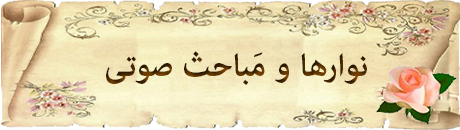 نوارها و مَباحث صوتی